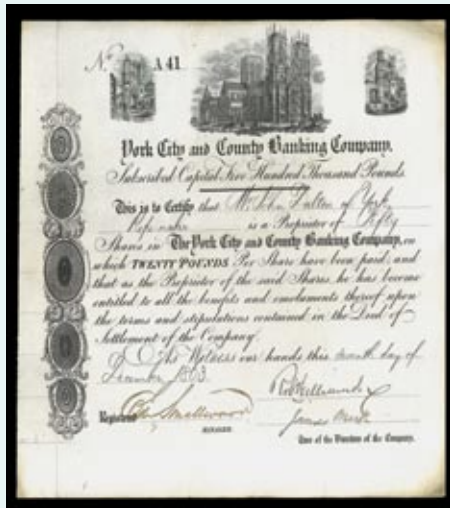 No. A 41
York City and County Banking Company,
Subscribed Capital Five Hundred Thousand Pounds.
This is to Certify that John of York
is a Proprietor of Fifty
Shares in The York City and County Banking Company, on
which TWENTY POUNDS Per Share have been paid; and
that as the Proprietor of the said Shares, he has become
entitled to all the benefits and emoluments thereof upon
the terms and stipulations contained in the Deed of
Settlement of the Company.
As Witness our hands this day of
Registered Smallwood
MANAGER
James
Two of the Directors of the Company.